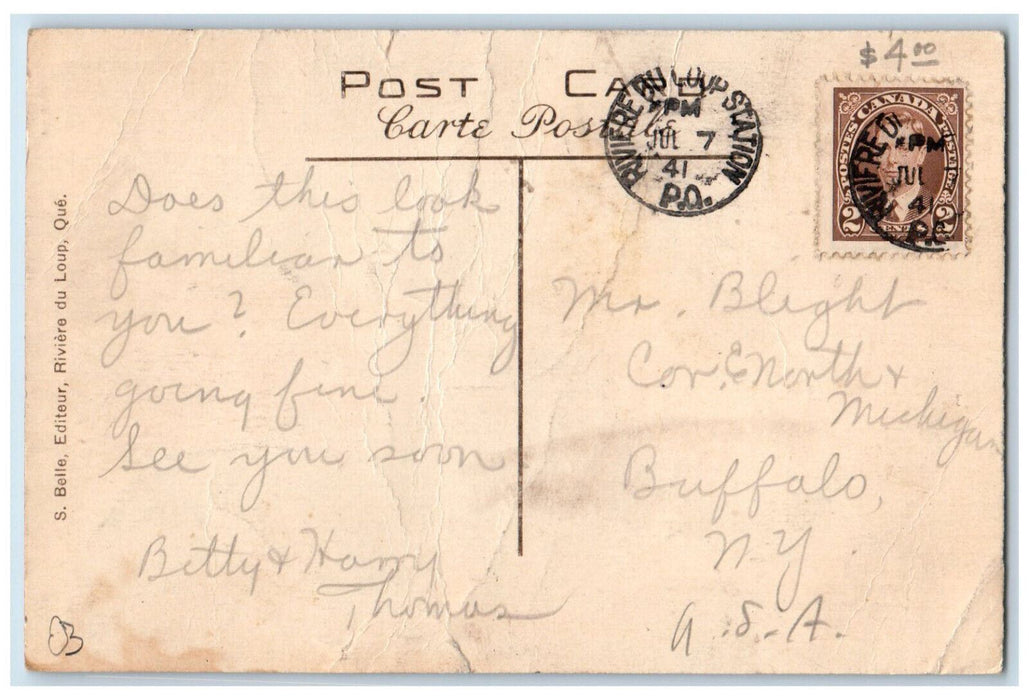 $4.00
POST CARD
Carte Postale
RIVIERE DU LOUP STATION
PM
JUL 7
41
P.O.
POSTES CANADA POSTAGE
2 CENTS 2
RIVIERE DU
PM
JUL
41
P.O.
Does this look
familiar to
you? Everything
going fine.
See you soon
Betty & Harry
Thomas
Mr. Blight
Cor. E North &
Michigan
Buffalo,
N.Y.
U.S.A.
S. Belle, Editeur, Rivière du Loup, Qué.